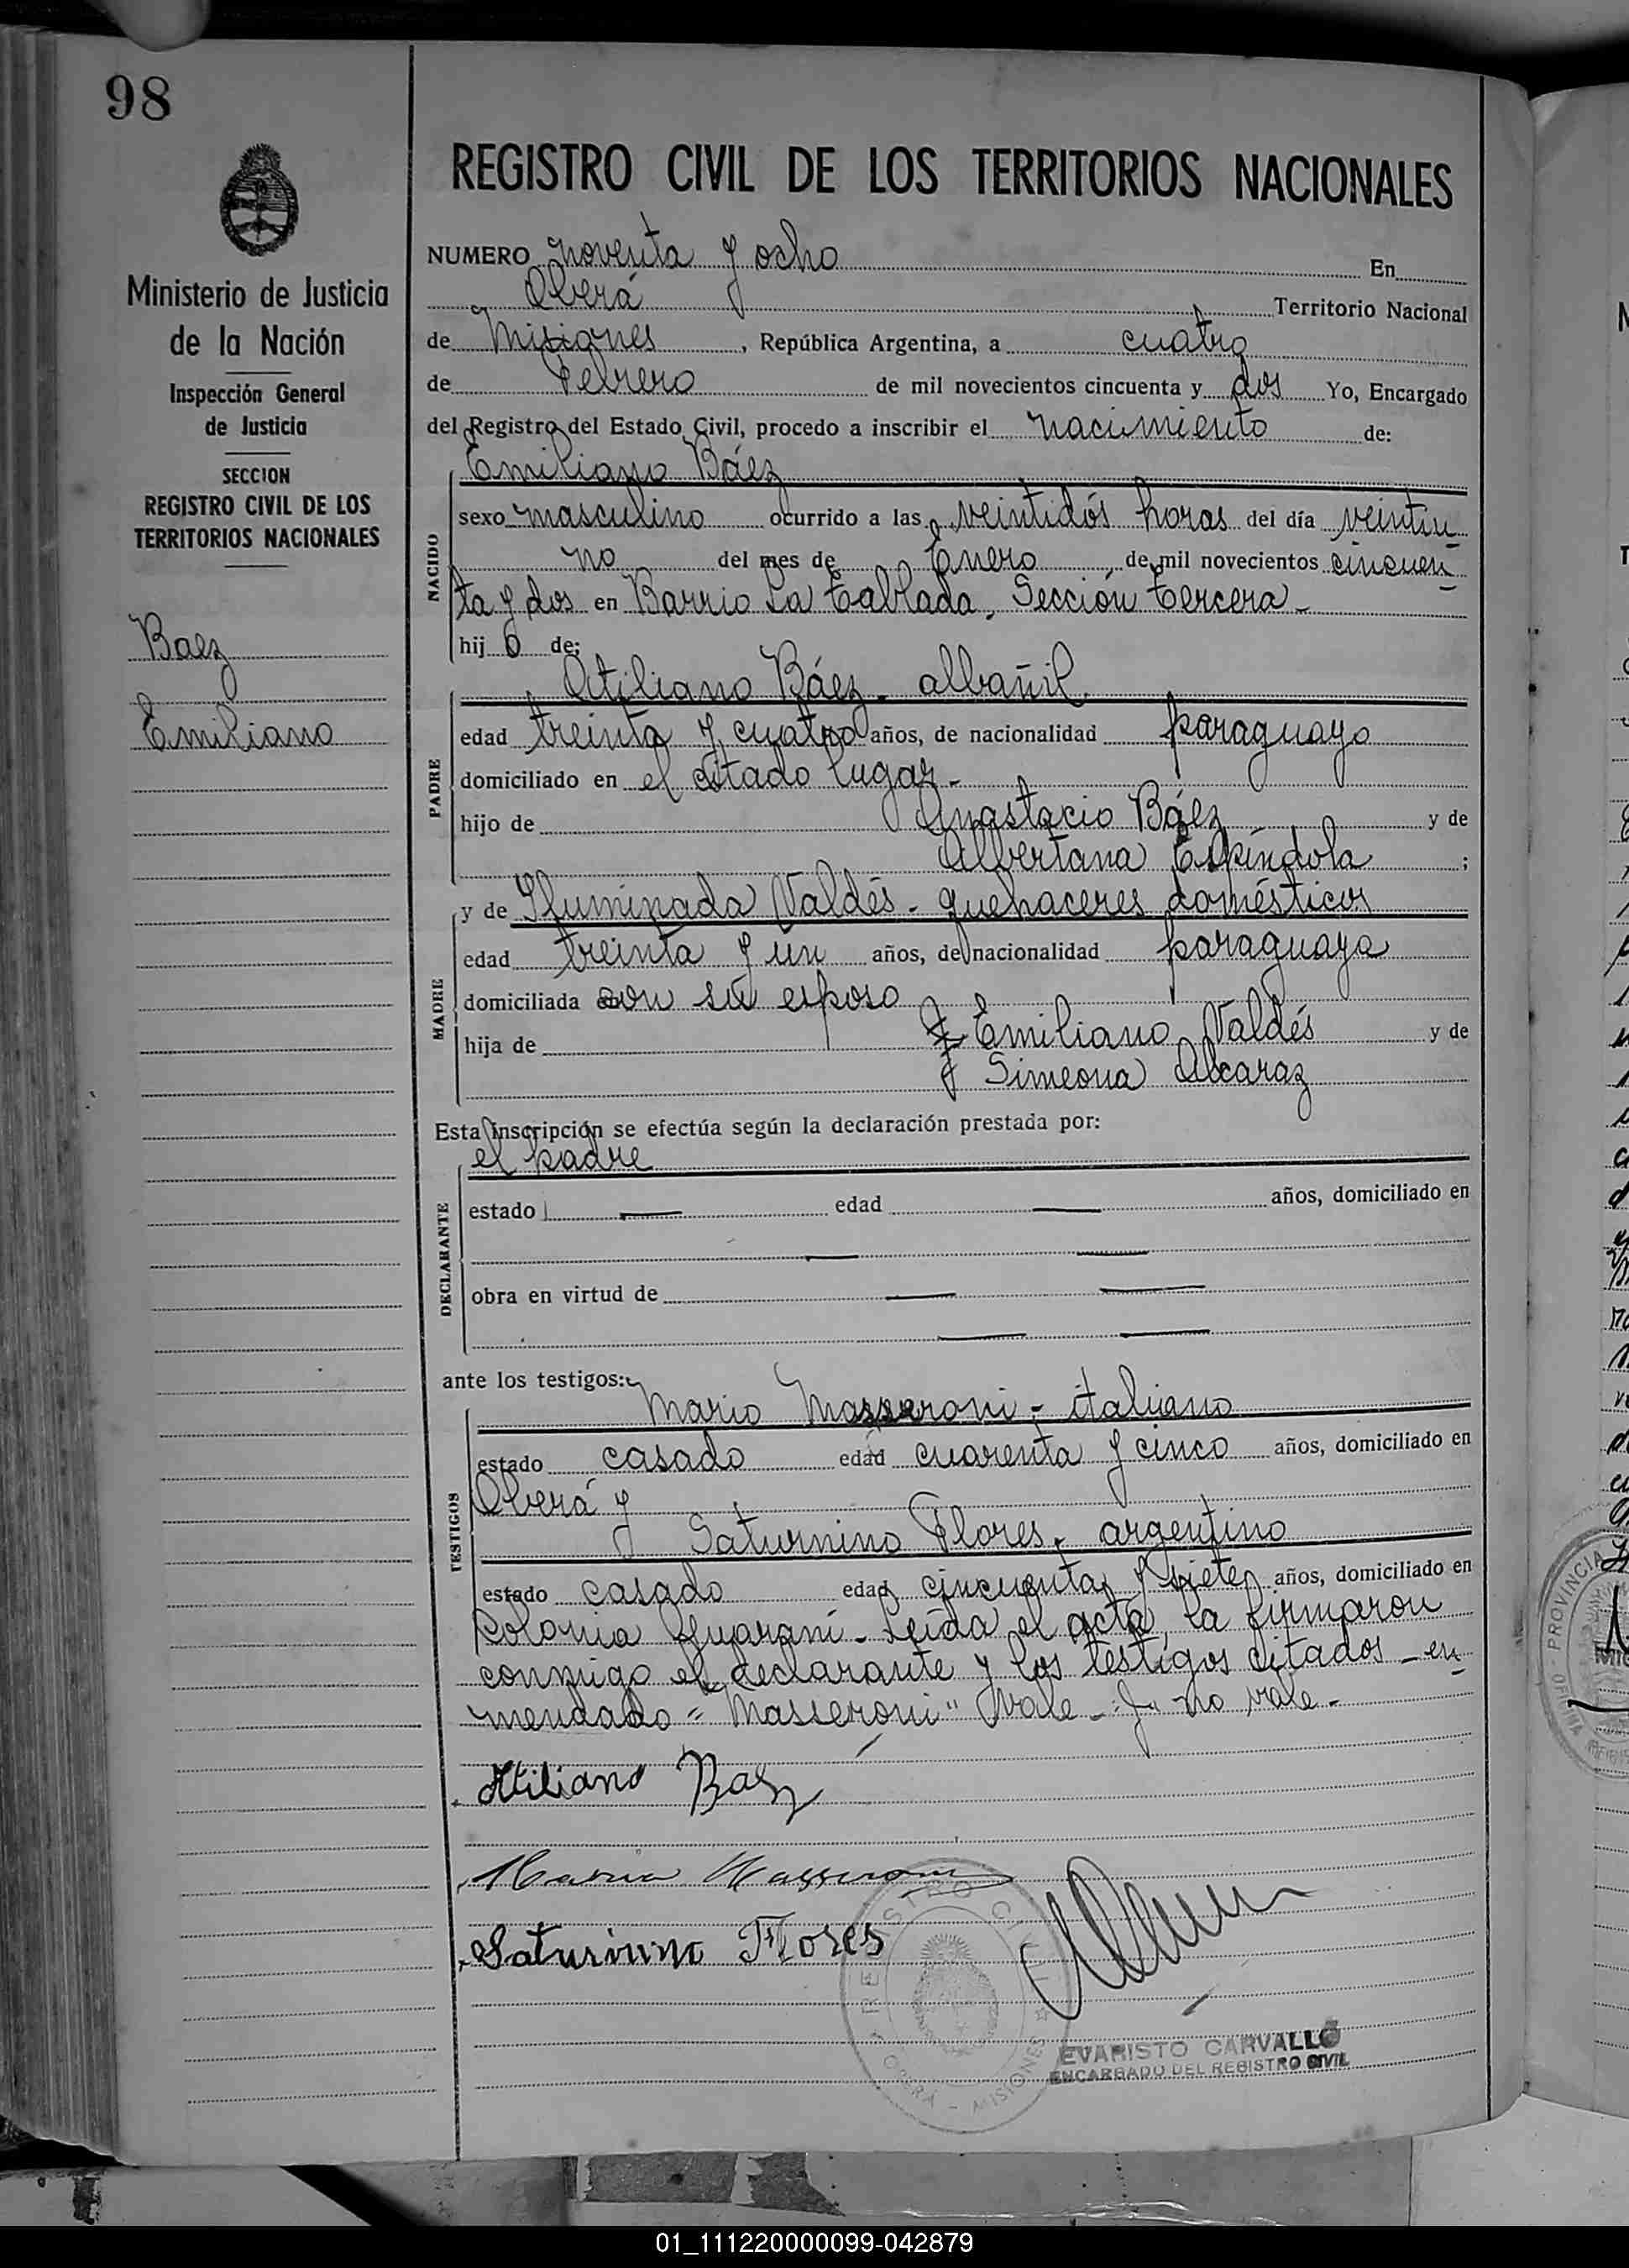 98
Ministerio de Justicia
de la Nación
Inspección General
de Justicia
SECCION
REGISTRO CIVIL DE LOS
TERRITORIOS NACIONALES
Baez
Emiliano
REGISTRO CIVIL DE LOS TERRITORIOS NACIONALES
NUMERO noventa y ocho En
Oberá Territorio Nacional
de Misiones, República Argentina, a cuatro
de Febrero de mil novecientos cincuenta y dos Yo, Encargado
del Registro del Estado Civil, procedo a inscribir el nacimiento de:
Emiliano Báez
NACIDO
sexo masculino ocurrido a las veintidós horas del día veintiu
no del mes de Enero de mil novecientos cincuen
ta y dos en Barrio La Tablada, Sección tercera-
hijo de:
Atiliano Báez - albañil
PADRE
edad treinta y cuatro años, de nacionalidad paraguayo
domiciliado en el citado lugar-
hijo de Anastacio Báez y de
Albertana Espíndola ;
y de Iluminada Valdés - quehaceres domésticos
MADRE
edad treinta y un años, de nacionalidad paraguaya
domiciliada con su esposo
hija de y Emiliano Valdés y de
y Simeona Alcaraz
Esta inscripción se efectúa según la declaración prestada por:
el padre
DECLARANTE
estado — edad — años, domiciliado en
— —
obra en virtud de — —
— —
ante los testigos:
Mario Masseroni - italiano
TESTIGOS
estado casado edad cuarenta y cinco años, domiciliado en
Oberá y
Saturnino Flores - argentino
estado casado edad cincuenta y siete años, domiciliado en
Colonia Guaraní - Leída el acta, la firmaron
conmigo el declarante y los testigos citados - en
mendado "Masseroni" vale - "y" no vale -
Atiliano Baez
Mario Masseroni
Saturnino Flores
REGISTRO CIVIL
OBERÁ - MISIONES
EVARISTO CARVALLO
ENCARGADO DEL REGISTRO CIVIL
PROVINCIA
01_111220000099-042879